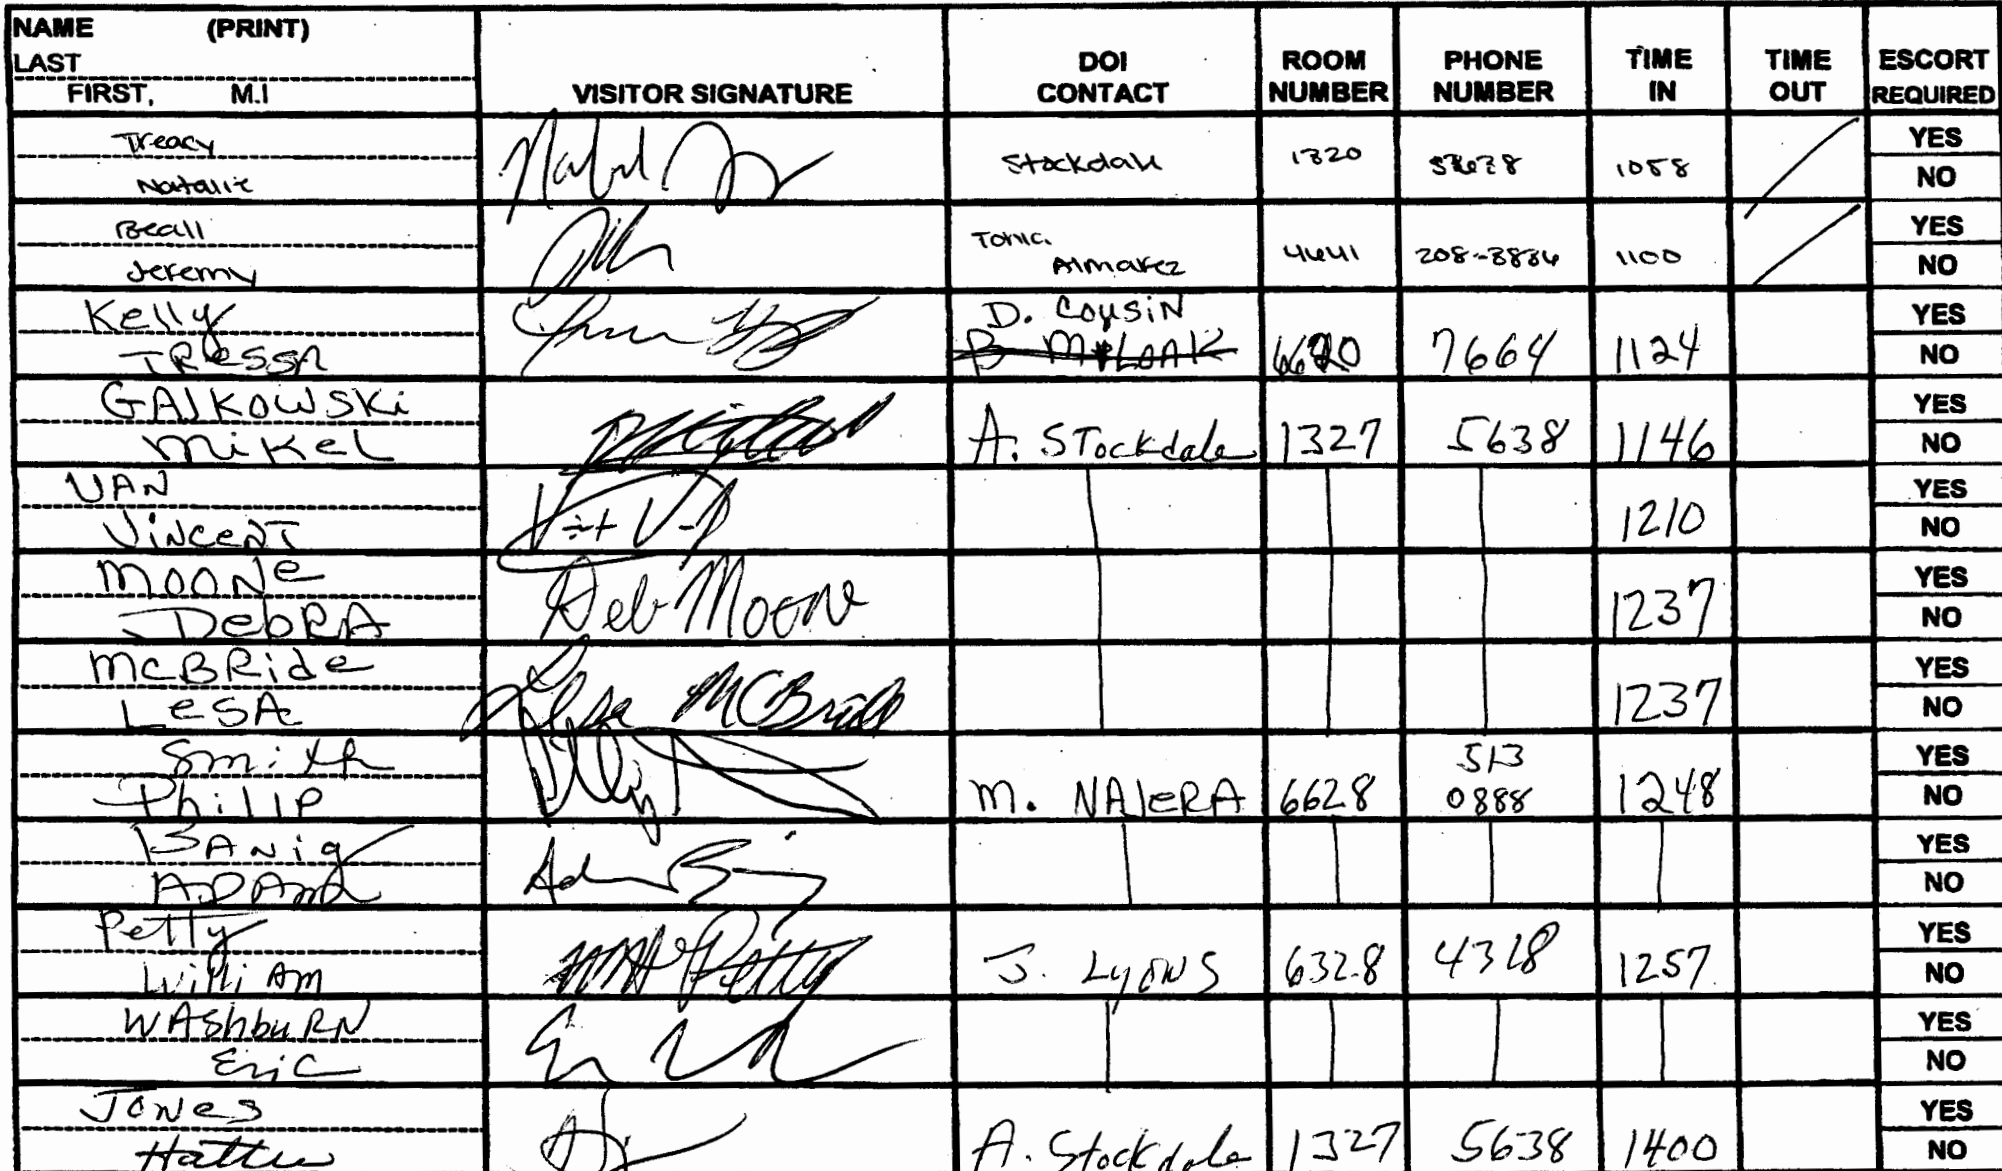 NAME (PRINT)
LAST
FIRST, M.I
VISITOR SIGNATURE
DOI
CONTACT
ROOM
NUMBER
PHONE
NUMBER
TIME
IN
TIME
OUT
ESCORT
REQUIRED
Treacy
Natalie
Stockdale
1320
1058
YES
NO
Beall
Jeremy
Tonia
Almarez
4641
208-3884
1100
YES
NO
Kelly
TRessA
D. COUSIN
6620
7664
1124
YES
NO
GAlKOWSKi
MiKeL
A. STockdale
1327
5638
1146
YES
NO
VAN
VINCENT
1210
YES
NO
MOONe
DebRA
Deb Moone
1237
YES
NO
McBRide
LeSA
Lesa McBride
1237
YES
NO
Smith
PhiLIP
M. NAJeRA
6628
513
0888
1248
YES
NO
BANig
ADAM
YES
NO
Petty
WilliAm
Petty
J. LyONS
6328
4318
1257
YES
NO
WAShbuRN
Eric
YES
NO
JONes
Hattie
A. Stockdale
1327
5638
1400
YES
NO